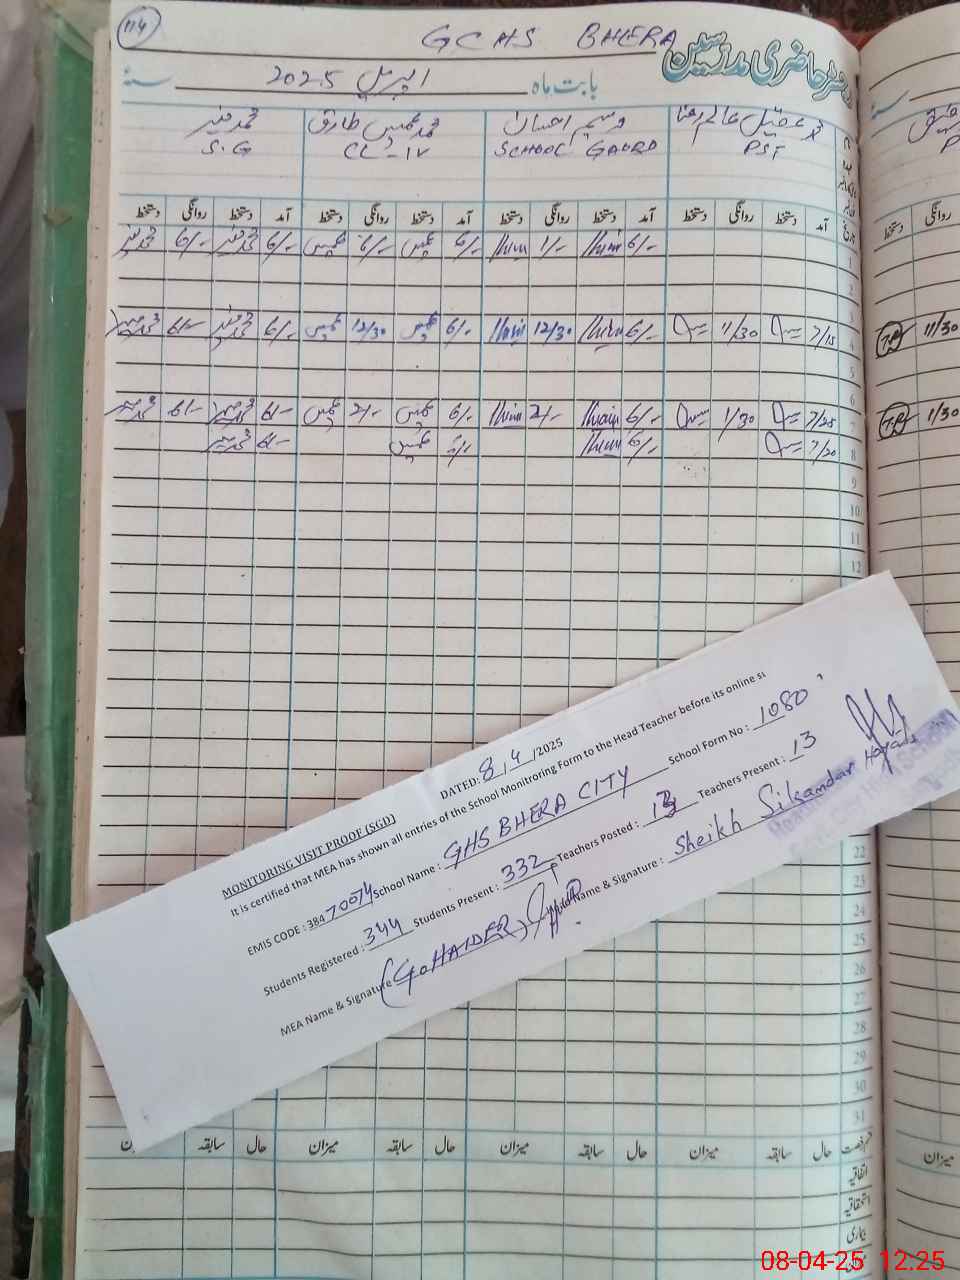 114
GCHS BHERA
دفتر حاضری مدرسین
بابت ماہ اپریل 2025 سنہ
محمد عقیل عالم رضا وسیم احسان محمد عمیس طارق محمد منیر
PST SCHOOL GAURD CL-IV S.G
آمد دستخط روانگی دستخط آمد دستخط روانگی دستخط آمد دستخط روانگی دستخط آمد دستخط روانگی دستخط
روانگی دستخط
1 6/- 1/- 6/- 6/- 6/- 6/-
2
3
4 7/15 11/30 6/- 12/30 6/- 12/30 6/- 6/-
T.P 11/30
5
6
7 7/25 1/30 6/- 2/- 6/- 2/- 6/- 6/-
T.P 1/30
8 7/20 6/- 6/- 6/-
9
10
11
12
MONITORING VISIT PROOF (SGD)
DATED: 8/4/2025
It is certified that MEA has shown all entries of the School Monitroring Form to the Head Teacher before its online su
EMIS CODE : 38470074 School Name : GHS BHERA CITY School Form No : 1080
Students Registered : 344 Students Present : 332 Teachers Posted : 13 Teachers Present : 13
MEA Name & Signature (G. HAIDER) Name & Signature : Sheikh Sikandar Hayat
22
23
24
25
26
27
28
29
30
31
حال سابقہ میزان حال سابقہ میزان حال سابقہ میزان حال سابقہ
میزان
اتفاقیہ
استحقاقیہ
بیماری
08-04-25 12.25